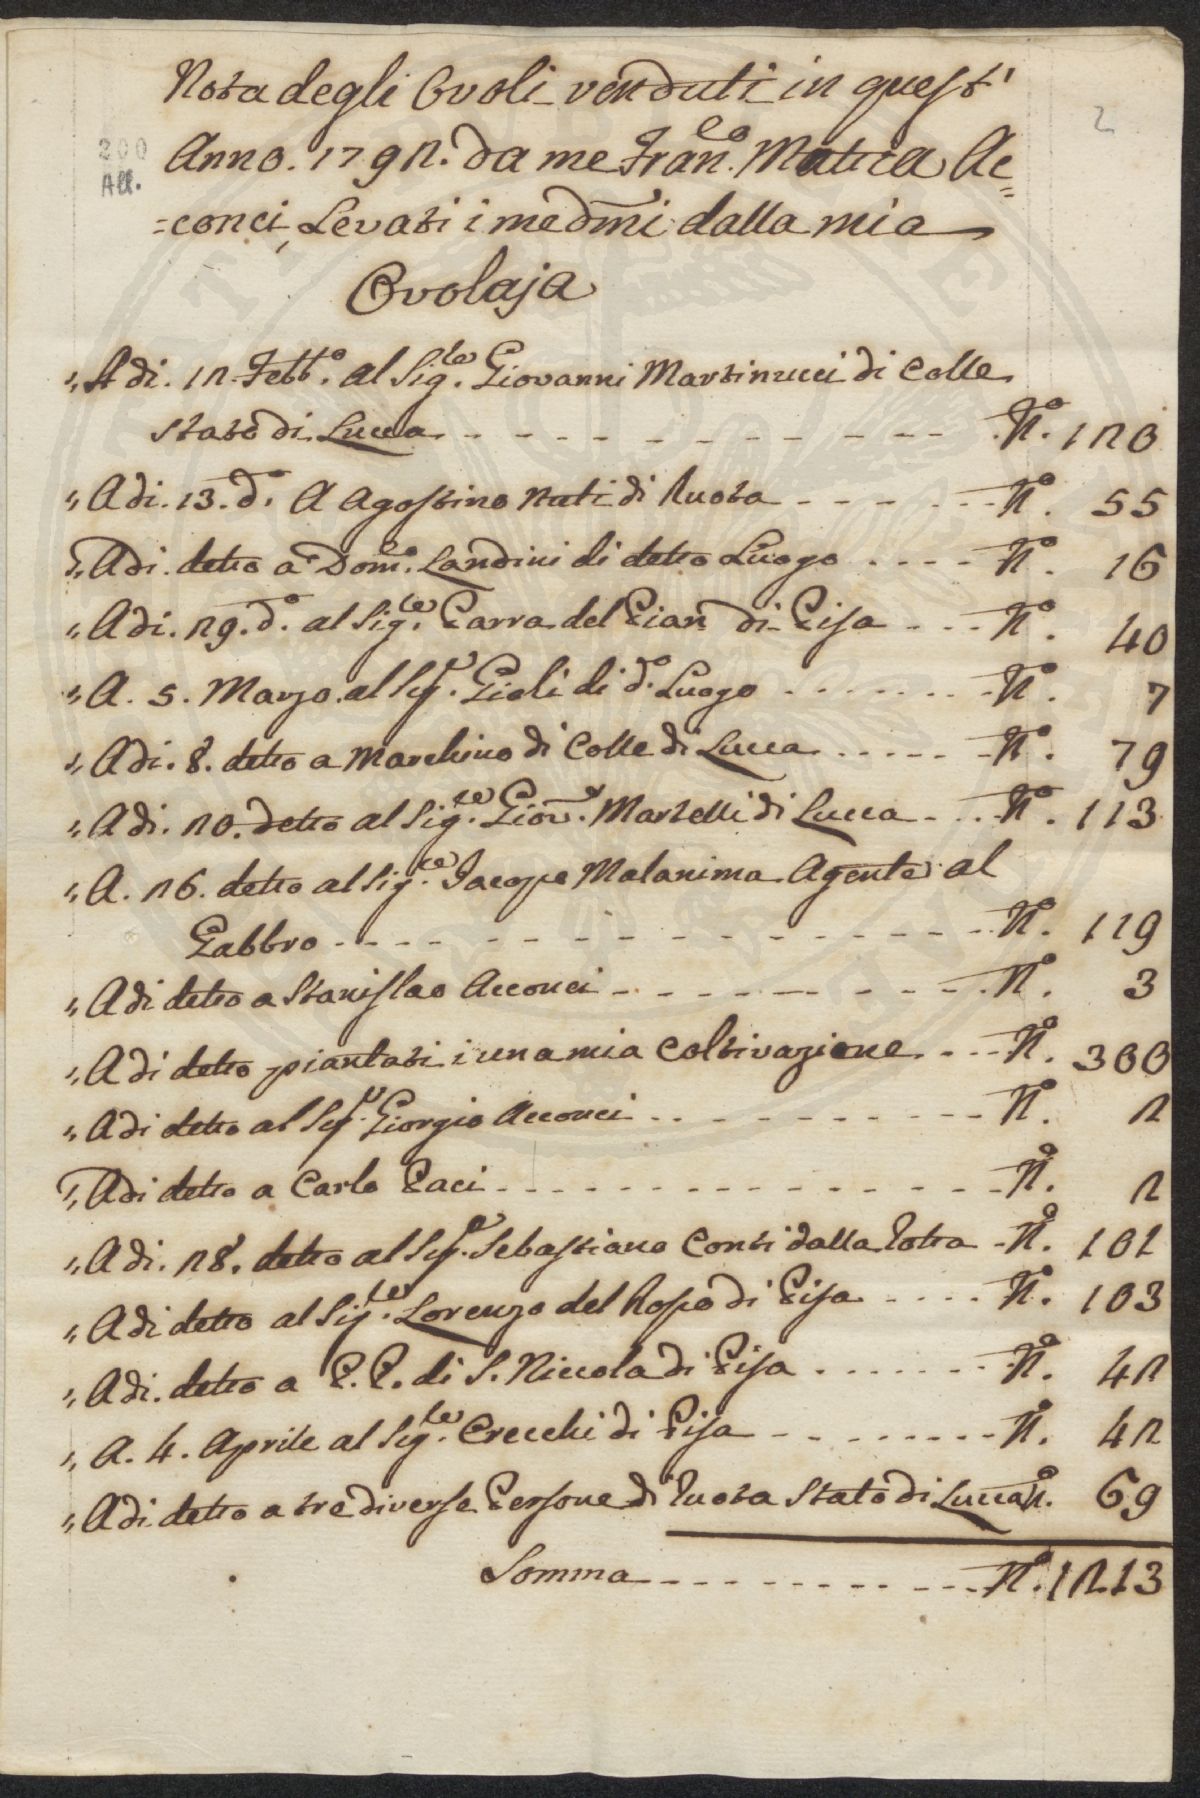 Nota degli Ovoli venduti in quest'
Anno. 1792. da me Fran.co Mattia Ac=
=conci, Levati i medmi dalla mia
Ovolaja
2
200
All.
"Adi. 12. Febb.o al Sig.re Giovanni Martinucci di Colle
Stato di Lucca - - - - - - - - - - - - N.o 120
"Adi. 13. d.o A Agostino Nuti di Ruota - - - - - - N.o 55
"Adi. detto a Dom.co Landini di detto Luogo . . . . N.o 16
"Adi. 29. d.o al Sig.re Parra del Pian di Pisa - - - N.o 40
"A. 5. Marzo al Sig.e Gioli di d.o Luogo - - - - - - - N.o 7
"Adi. 8. detto a Marchino di Colle di Lucca - - - - - N.o 79
"Adi. 20. detto al Sig.re Giov. Martelli di Lucca - - - N.o 113
"A. 26. detto al Sig.re Jacopo Malanima Agente al
Gabbro - - - - - - - - - - - - - - - - N.o 119
"Adi detto a Stanislao Acconci - - - - - - - - - N.o 3
"Adi detto piantati i una mia Coltivazione - - - N.o 300
"Adi detto al Sig.e Giorgio Acconci - - - - - - - - N.o 2
"Adi detto a Carlo Paci - - - - - - - - - - - - - - N.o 2
"Adi. 28. detto al Sig.e Sebastiano Conti dalla Rotta - N.o 101
"Adi detto al Sig.re Lorenzo del Rosso di Pisa - - - - N.o 103
"Adi. detto a P.P. di S. Niccola di Pisa - - - - - - - N.o 42
"A. 4. Aprile al Sig.re Crecchi di Pisa - - - - - - - - N.o 42
"Adi detto a tre diverse Persone di Ruota Stato di Lucca N.o 69
Somma - - - - - - - - - - - N.o 1213